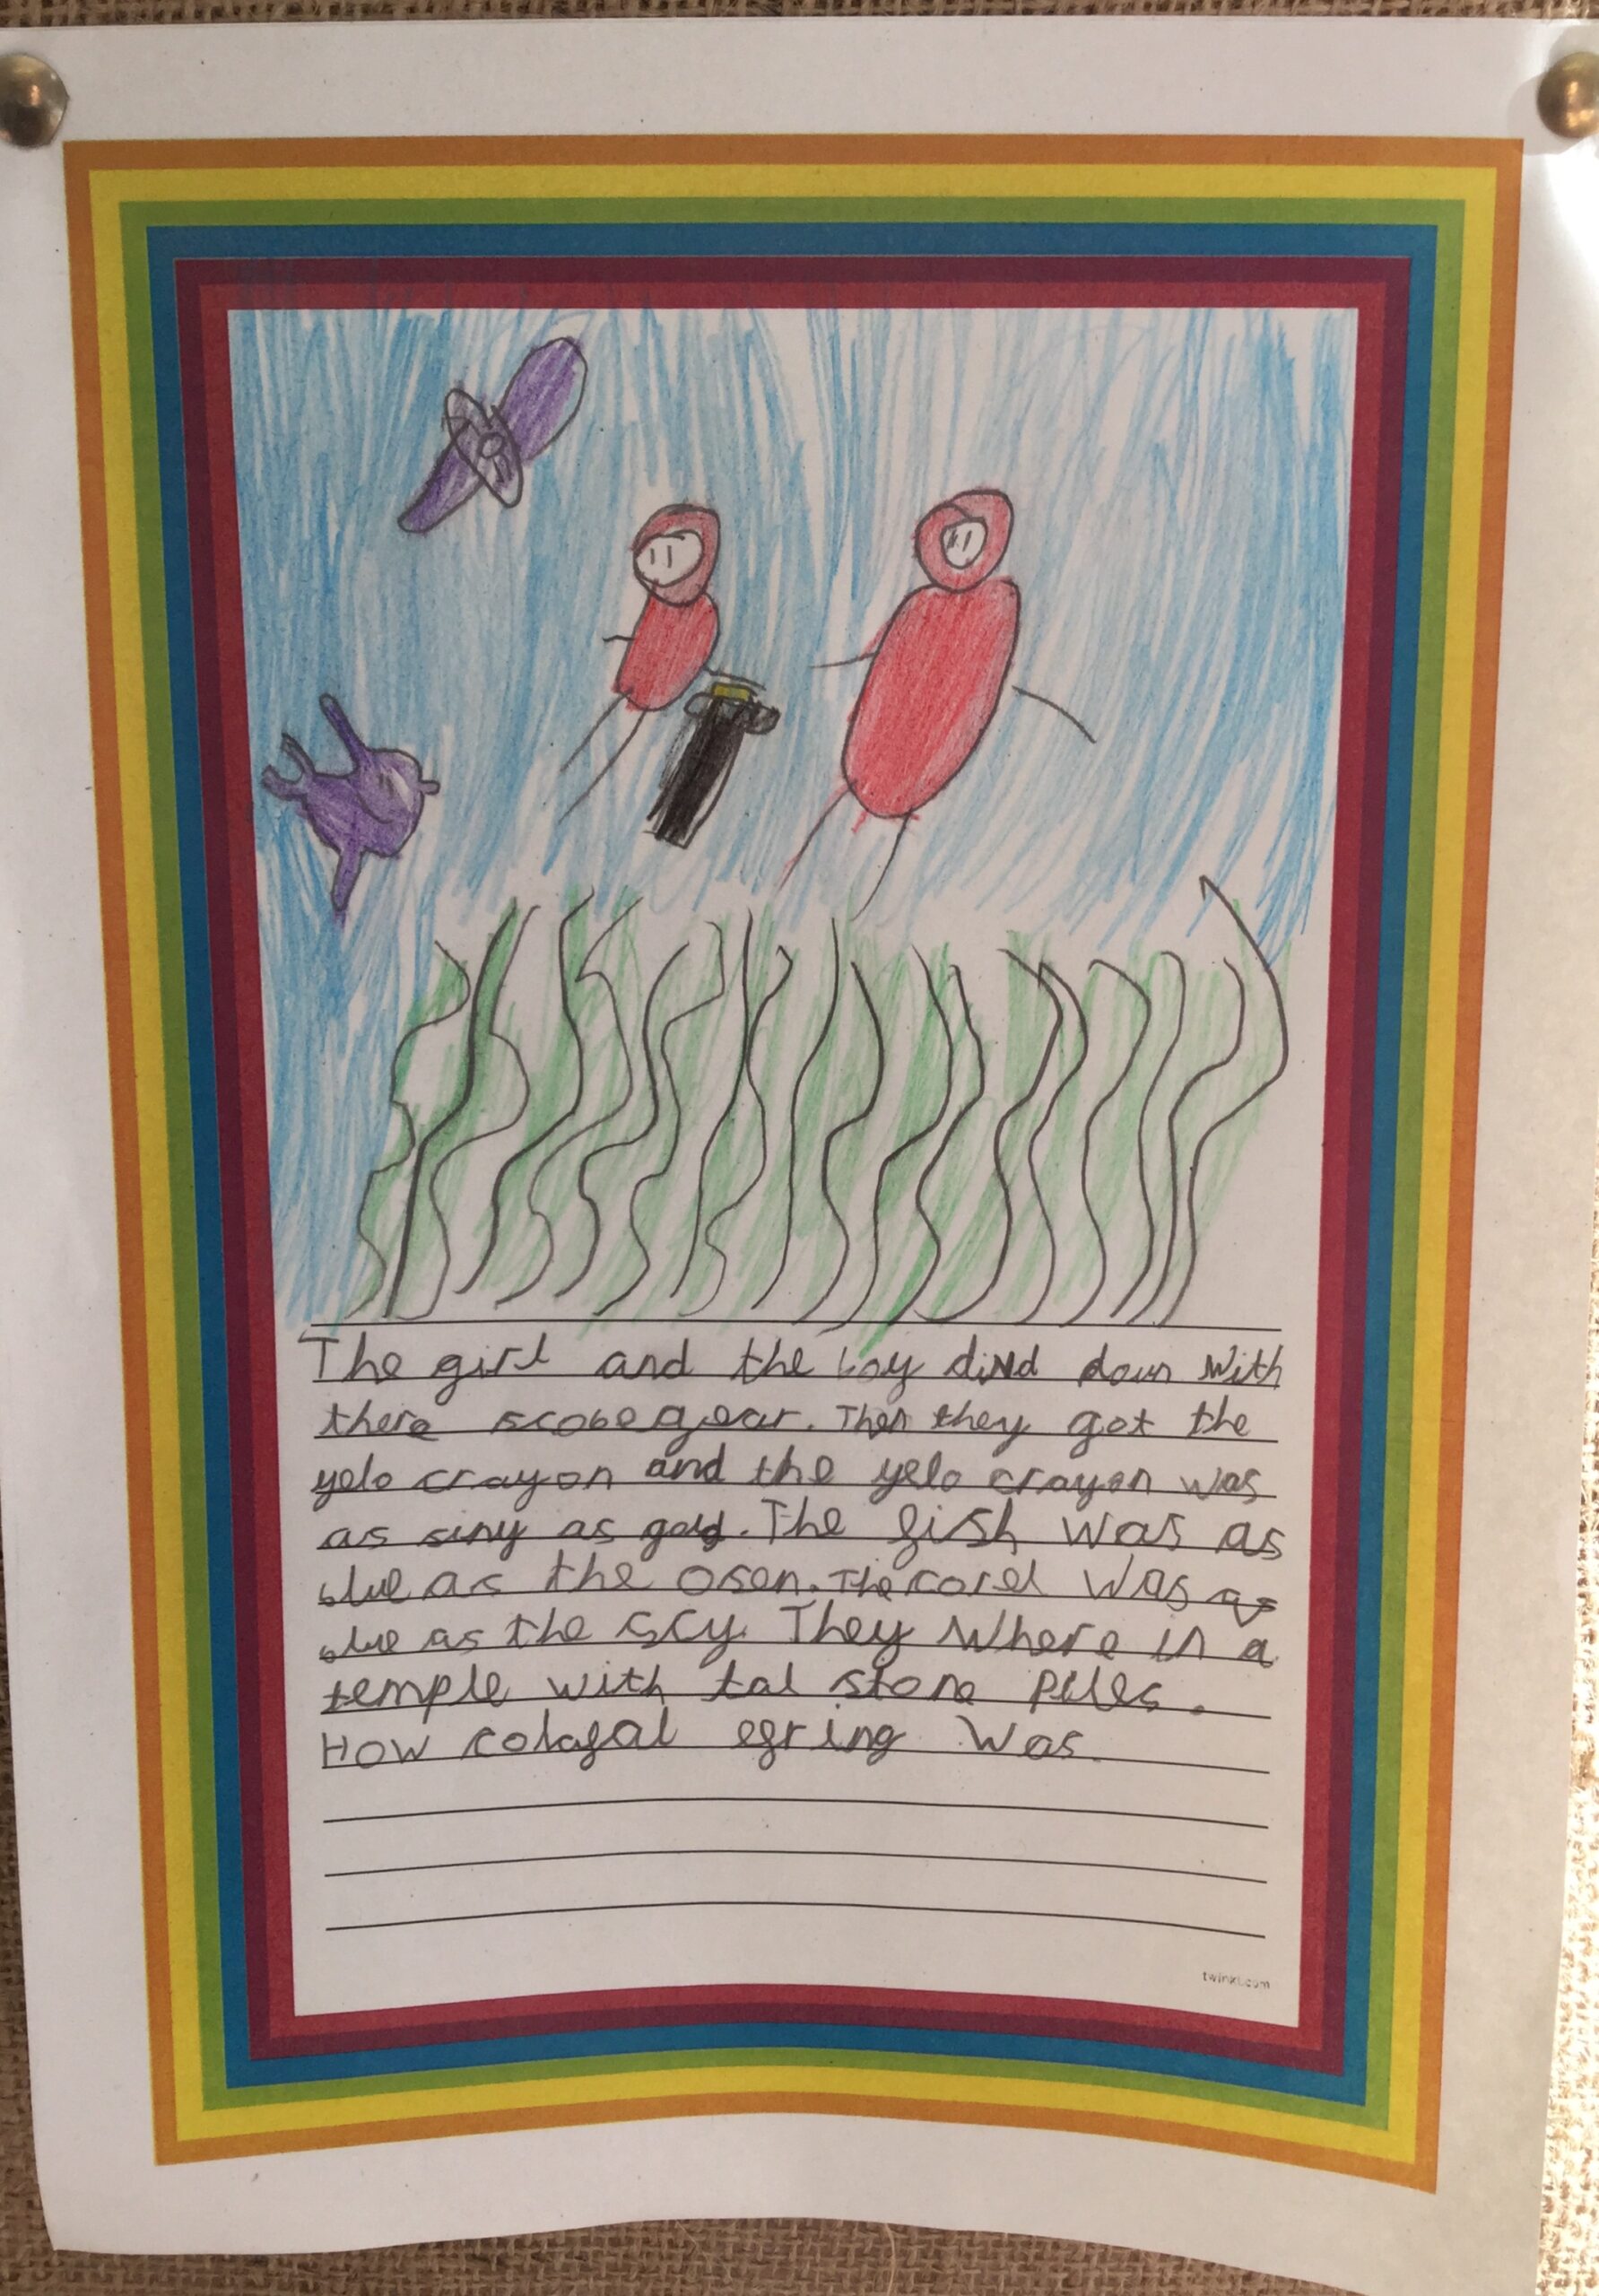 The girl and the boy divd down with
there scobe gear. Then they got the
yelo crayon and the yelo crayon was
as siny as gold. The fish was as
blue as the osen. The corel was as
blue as the scy. They where in a
temple with tal stone piles.
How colafal egring was.
twinkl.com